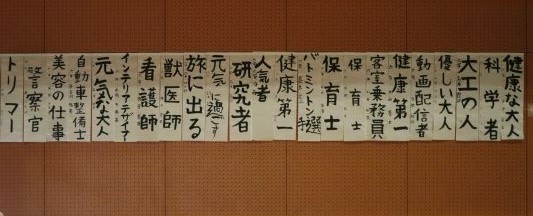 健康な大人
科学者
大工の人
優しい大人
動画配信者
健康第一
客室乗務員
保育士
保育士
バドミントン選手
健康第一
人気者
研究者
元気に過ごす
旅に出る
獣医師
看護師
インテリアデザイナー
元気な大人
自動車整備士
美容の仕事
警察官
トリマー